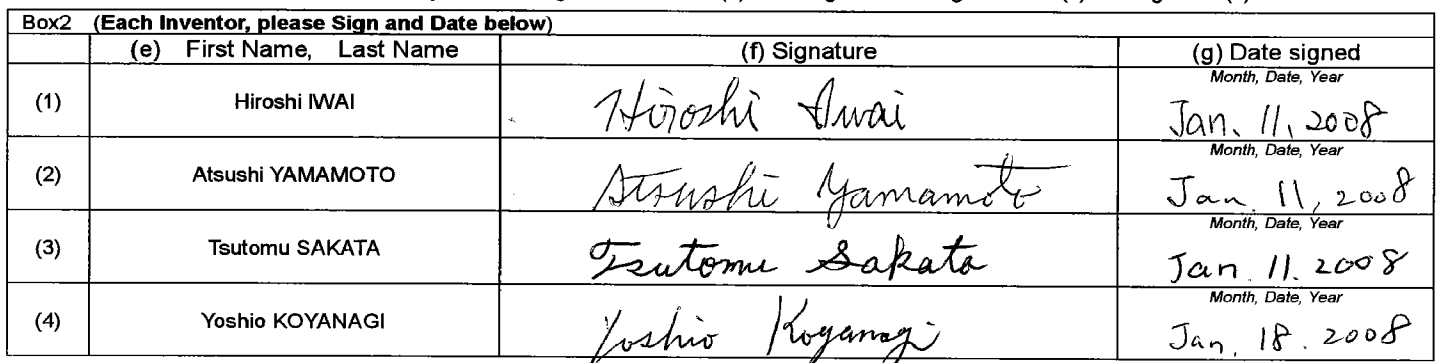 Box2 (Each Inventor, please Sign and Date below)
(e) First Name, Last Name (f) Signature (g) Date signed
(1) Hiroshi IWAI Hiroshi Iwai Month, Date, Year
Jan. 11, 2008
(2) Atsushi YAMAMOTO Atsushi Yamamoto Month, Date, Year
Jan. 11, 2008
(3) Tsutomu SAKATA Tsutomu Sakata Month, Date, Year
Jan. 11. 2008
(4) Yoshio KOYANAGI Yoshio Koyanagi Month, Date, Year
Jan. 18. 2008